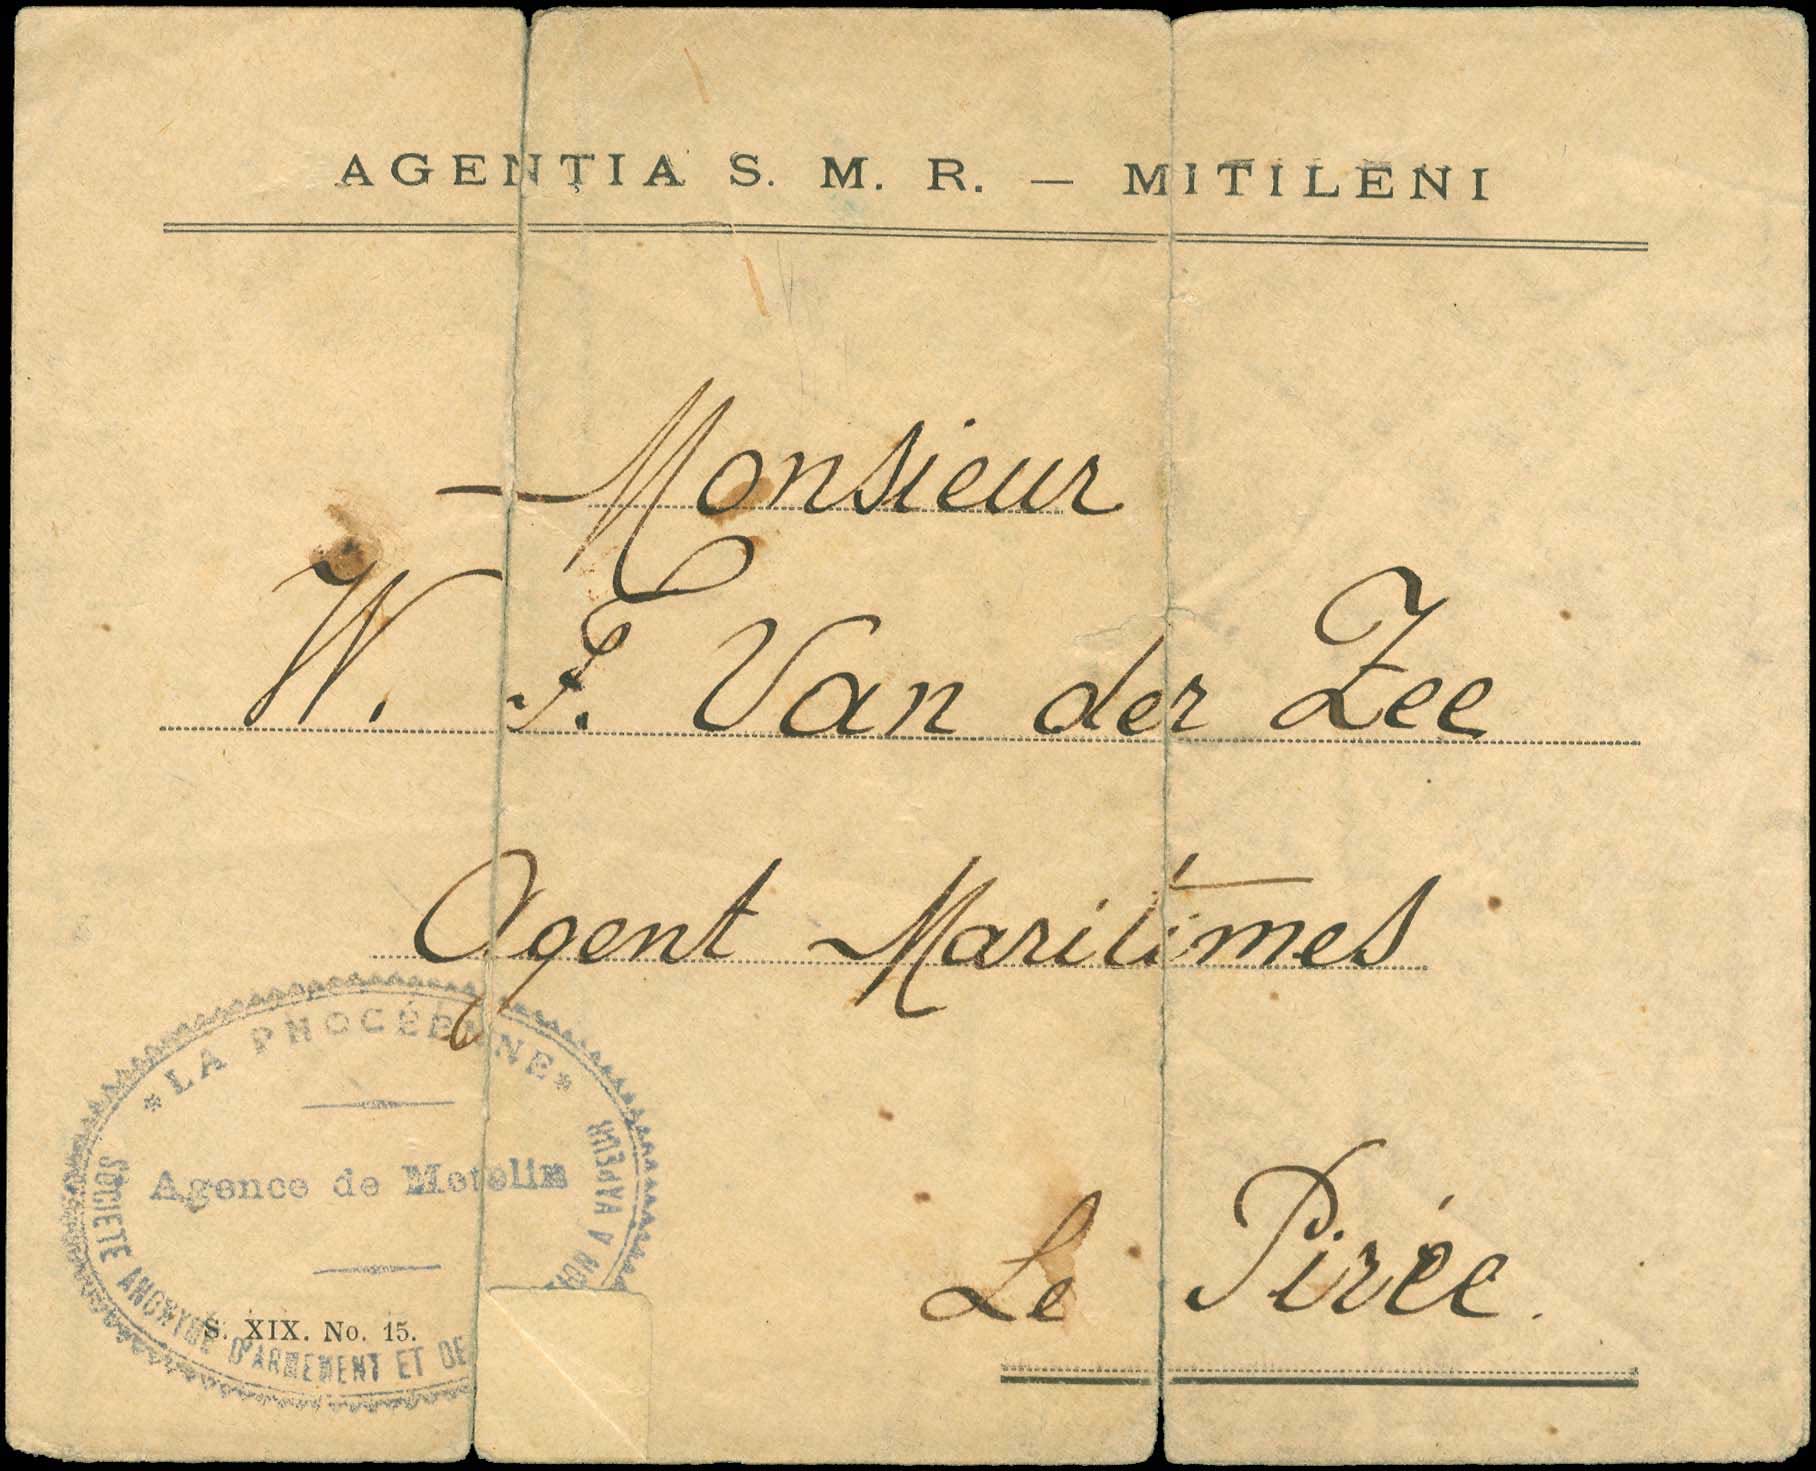 AGENȚIA S. M. R. — MITILENI
Monsieur
W. F. Van der Zee
Agent Maritimes
Le Pirée.
* LA PHOCÉENNE *
Agence de Metelin
SOCIETE ANONYME D'ARMEMENT ET DE
A VAPEUR
S. XIX. No. 15.